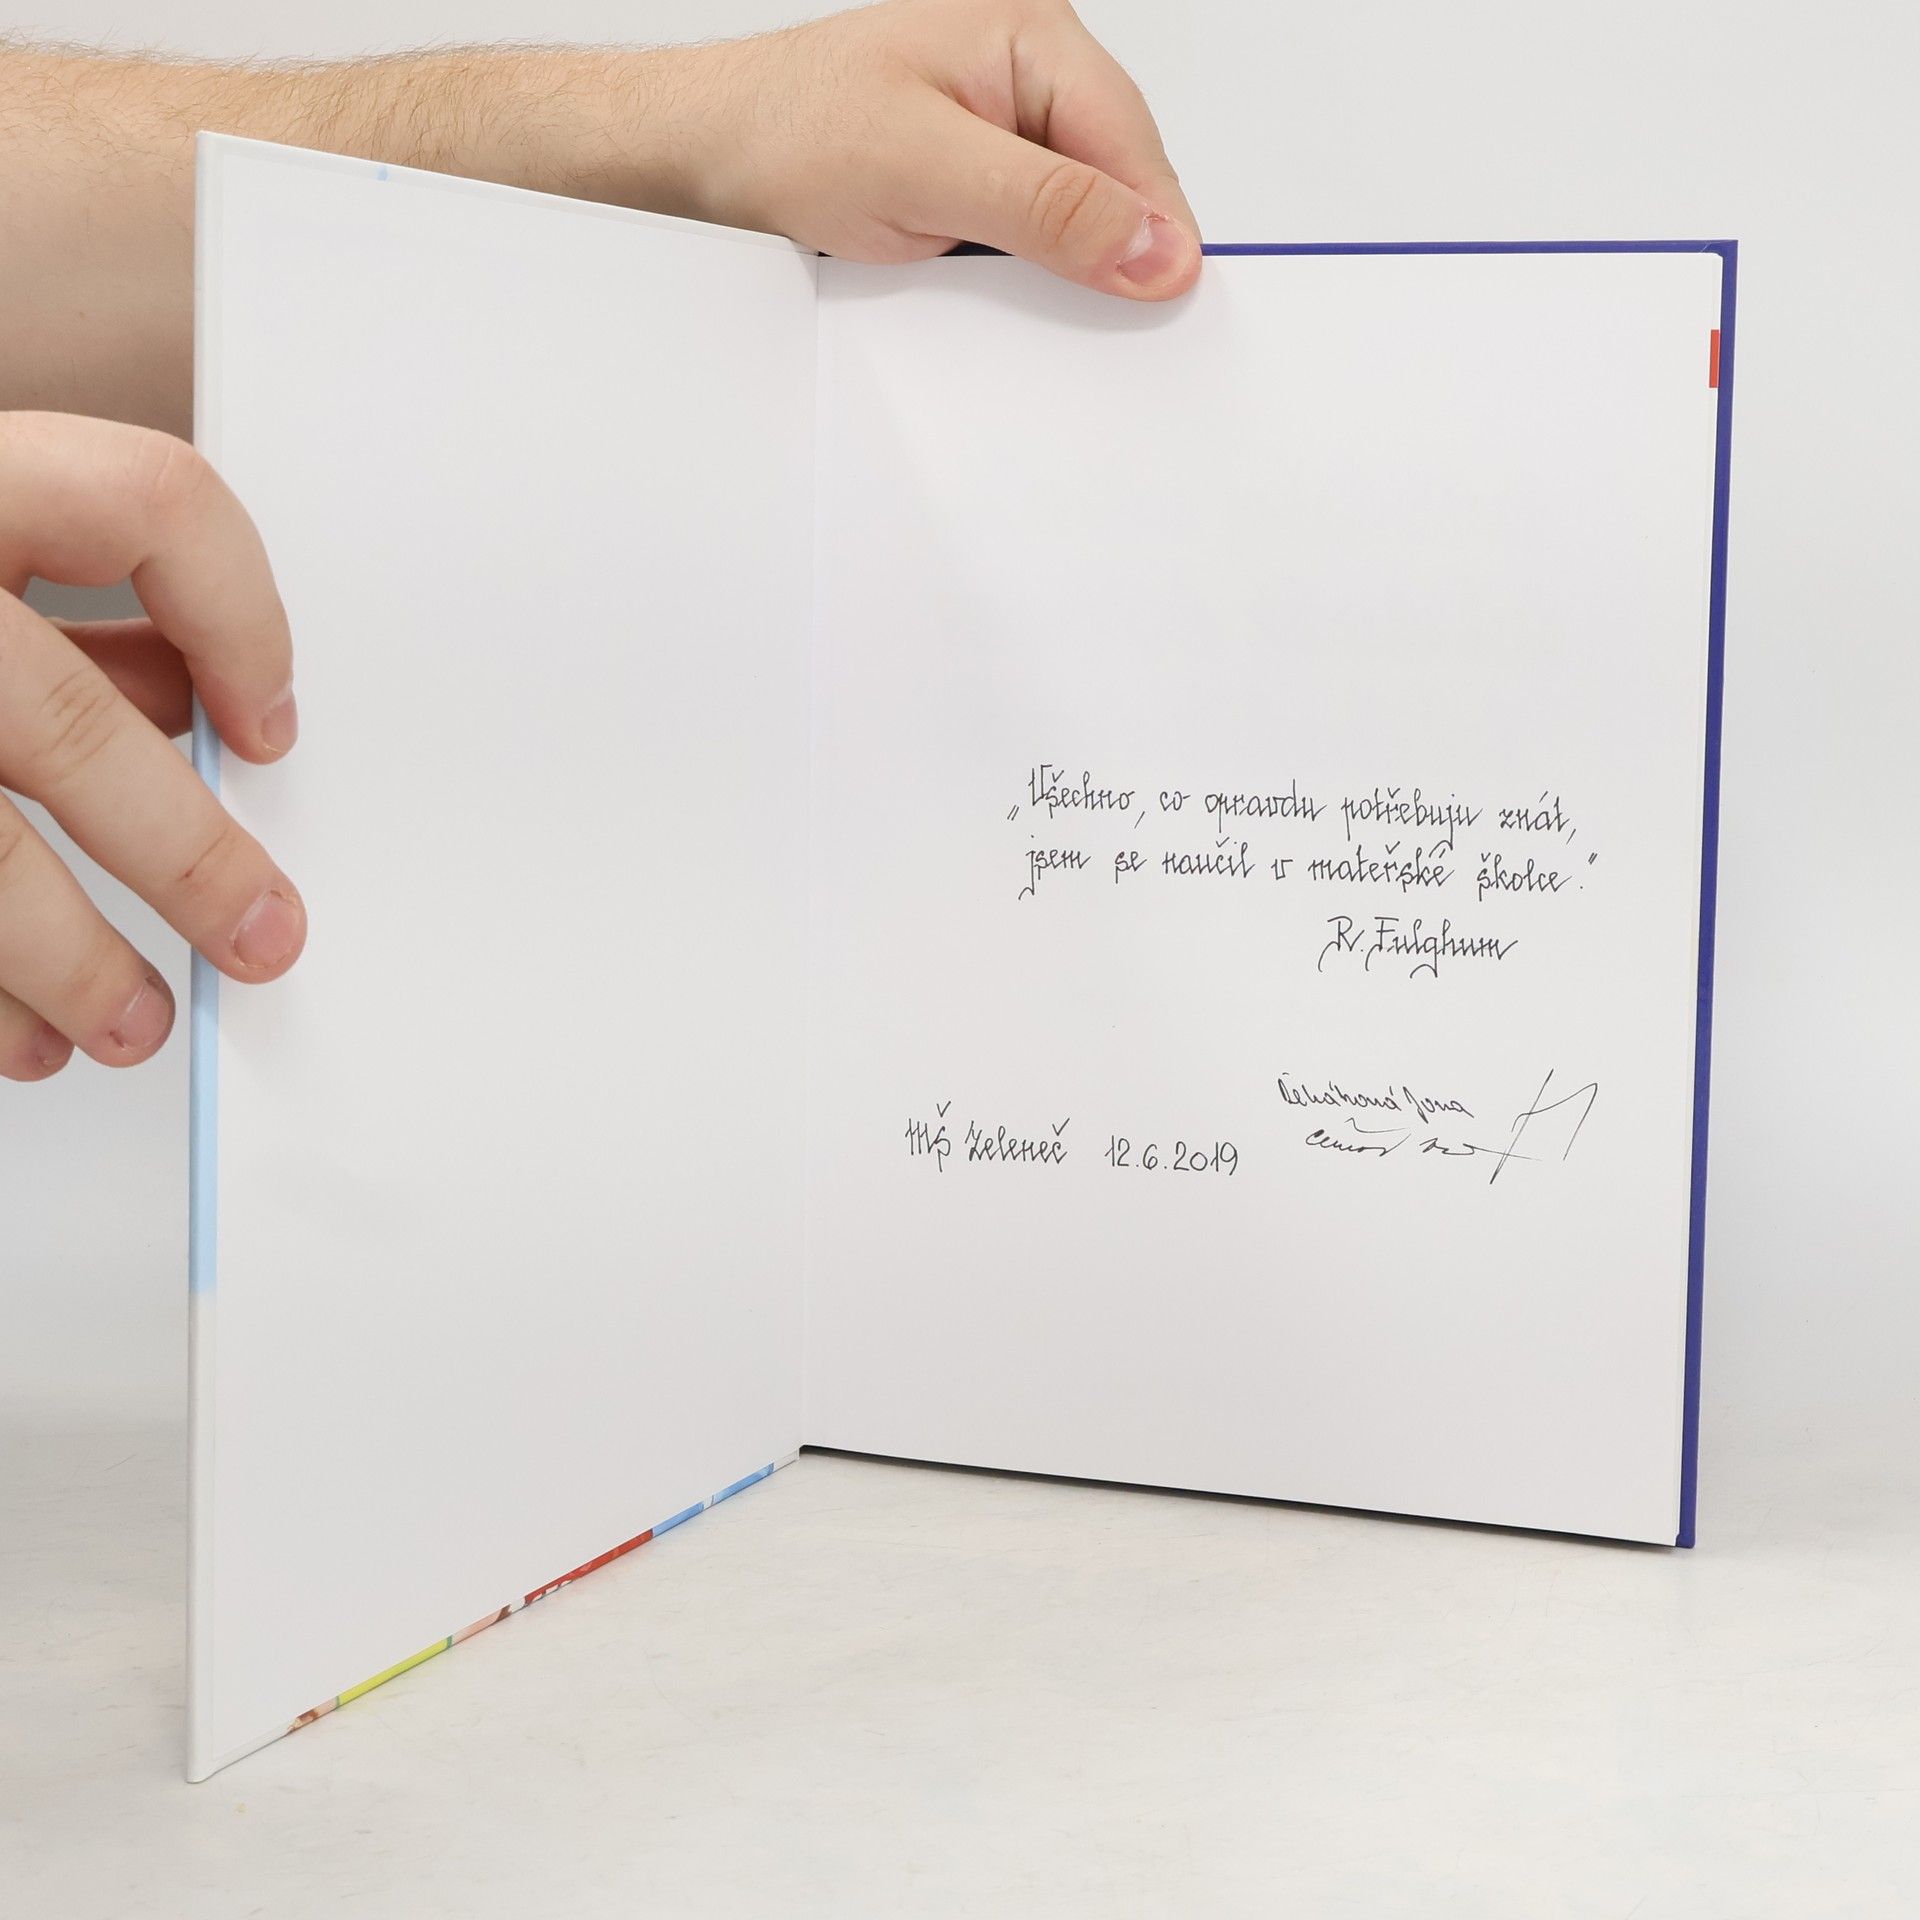 „Všechno, co opravdu potřebuju znát,
jsem se naučil v mateřské školce."
R. Fulghum
MŠ Zeleneč 12.6.2019
Jana